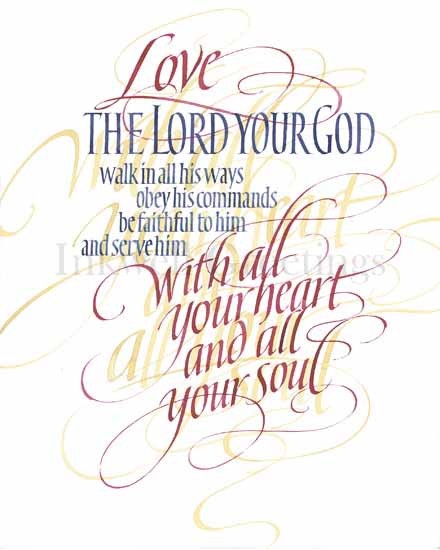 Love
THE LORD YOUR GOD
walk in all his ways
obey his commands
be faithful to him
and serve him
With all
your heart
and all
your soul